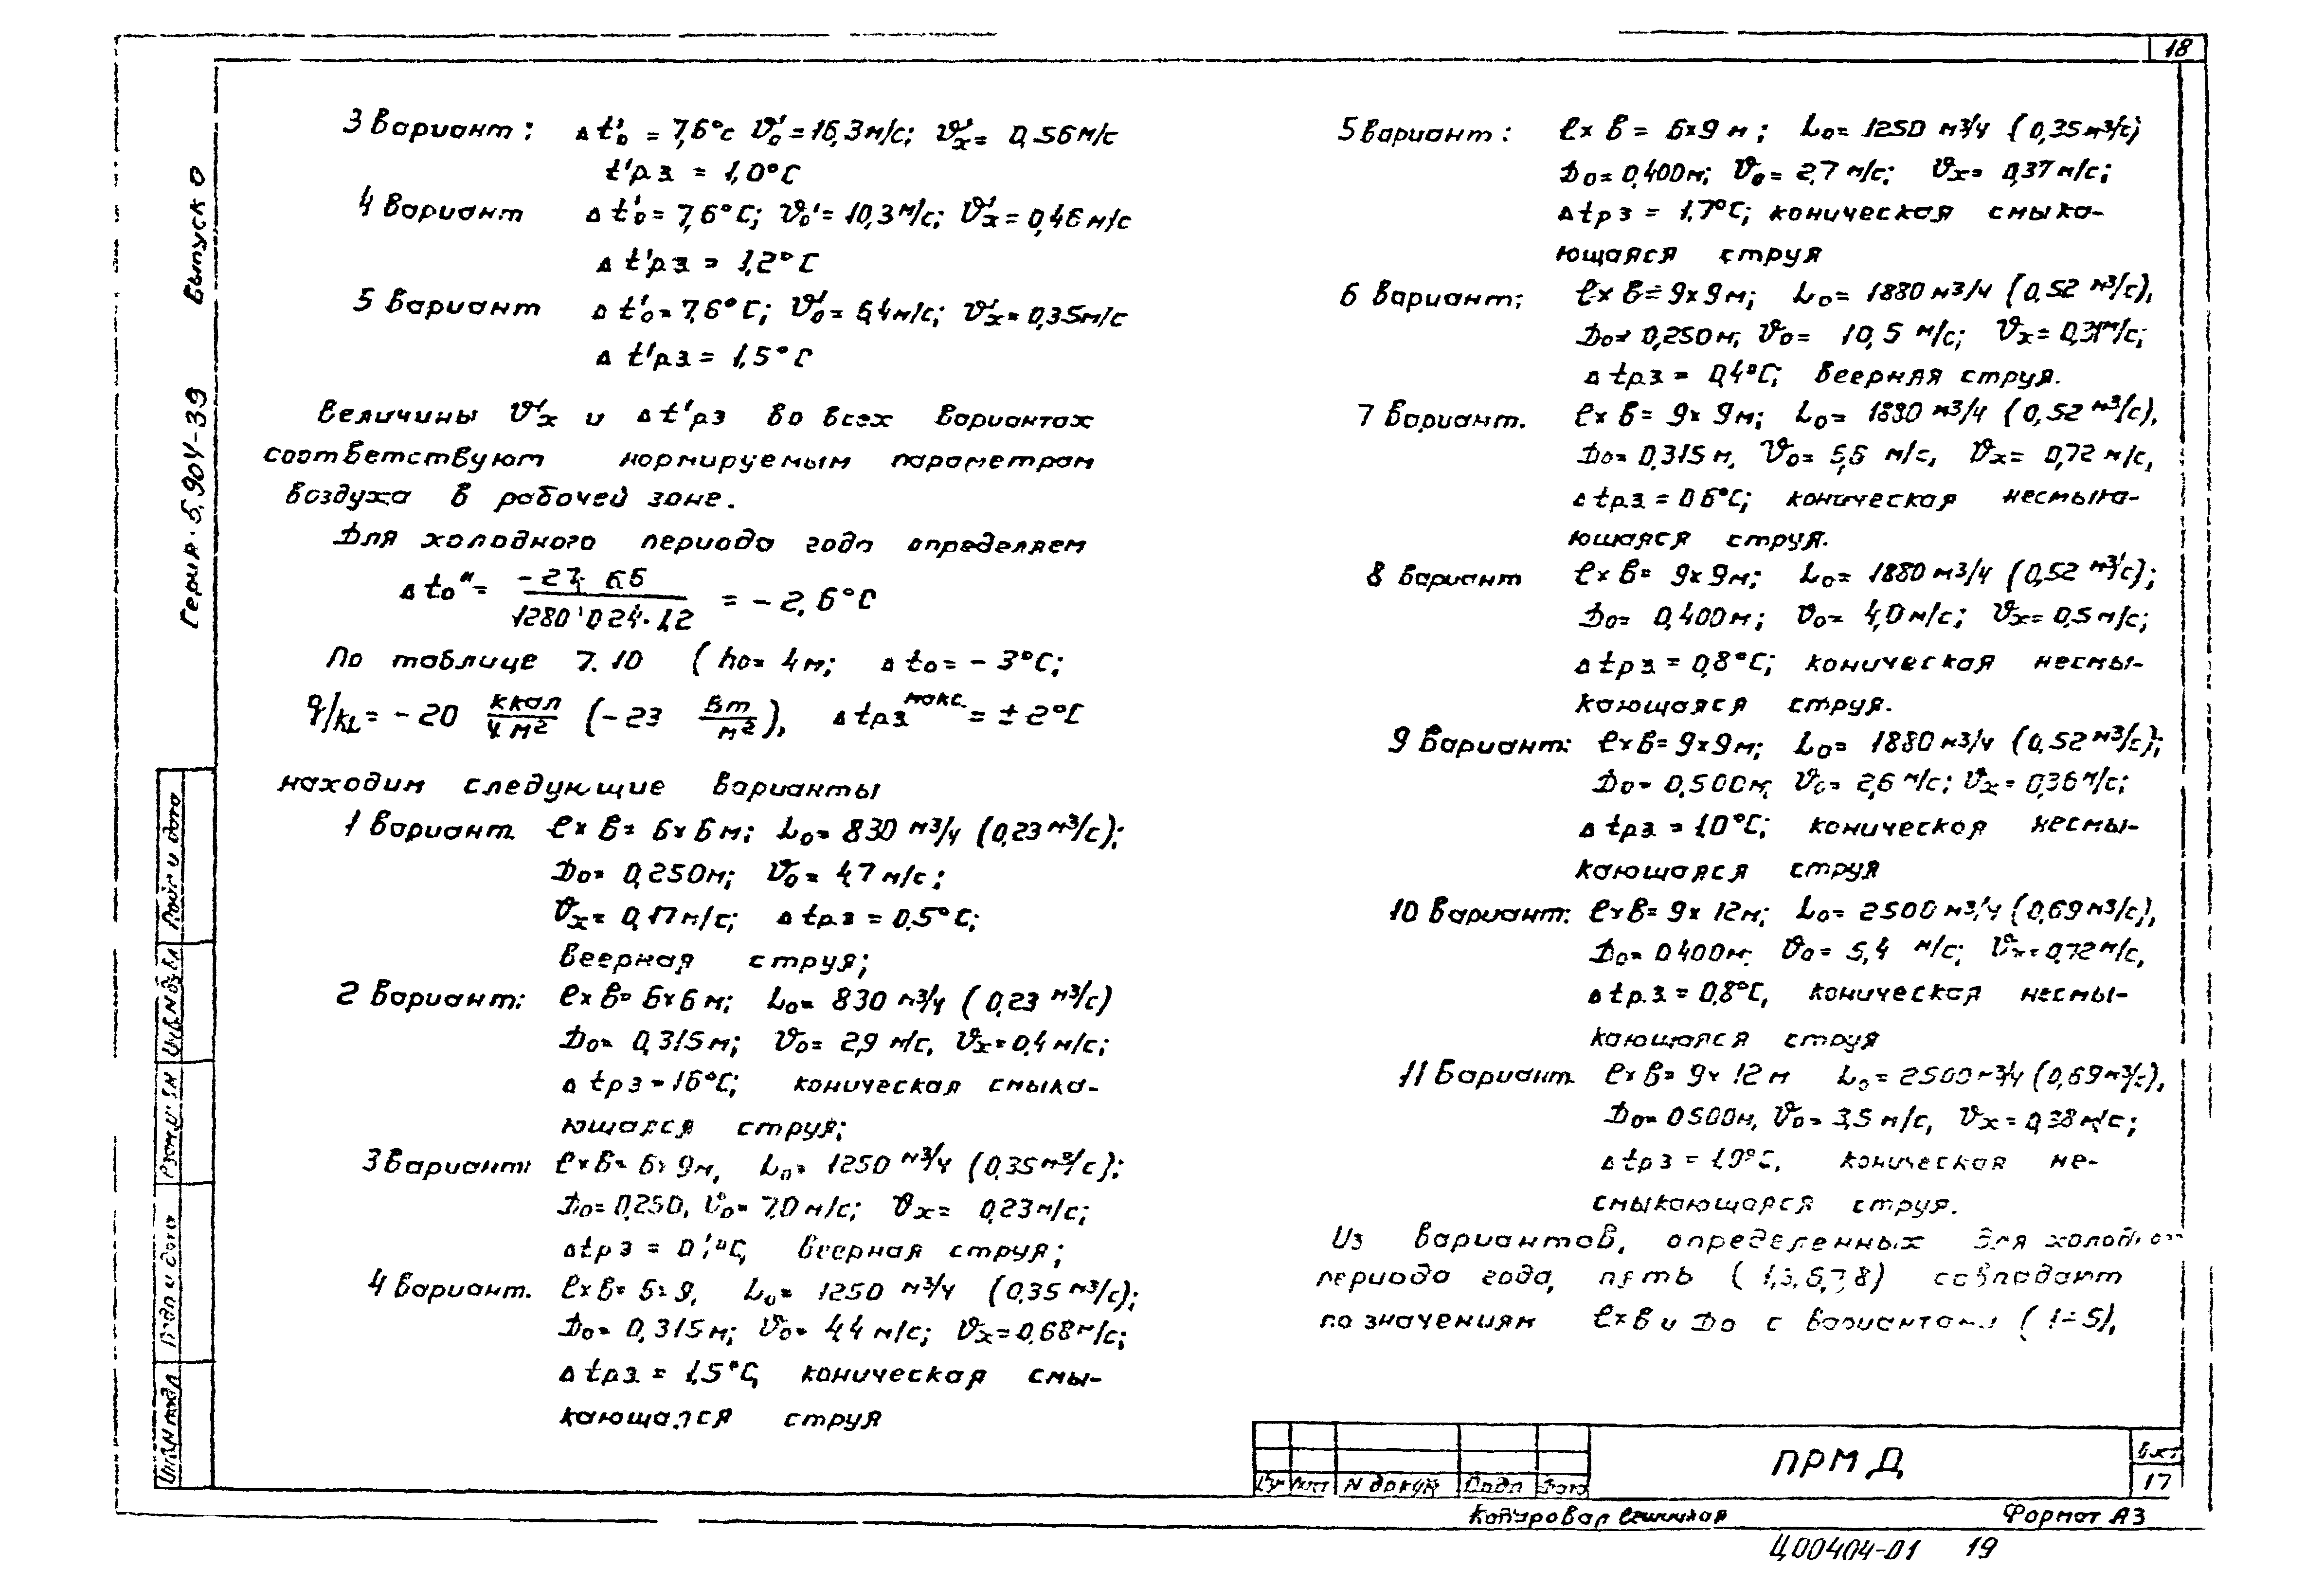 18
Серия 5.904-39 Выпуск 0
3 Вариант: Δt'₀ = 7,6°С ϑ'₀ = 16,3 м/с; ϑ'ₓ = 0,56 м/с
t'рз = 1,0°С
4 Вариант Δt'₀ = 7,6°С; ϑ₀' = 10,3 м/с; ϑ'ₓ = 0,46 м/с
Δt'рз = 1,2°С
5 Вариант Δt'₀ = 7,6°С; ϑ'₀ = 6,4 м/с; ϑ'ₓ = 0,35 м/с
Δt'рз = 1,5°С
Величины ϑ'ₓ и Δt'рз во всех вариантах
соответствуют нормируемым параметрам
воздуха в рабочей зоне.
Для холодного периода года определяем
Δt₀" = -27·66 / 1280·0,24·1,2 = -2,6°С
По таблице 7.10 (h₀ = 4м; Δt₀ = -3°С;
q/kL = -20 ккал/ч.м² (-23 Вт/м²), Δtрз макс. = ±2°С
находим следующие варианты
1 Вариант. ℓ×в = 6×6 м; L₀ = 830 м³/ч (0,23 м³/с);
D₀ = 0,250м; ϑ₀ = 4,7 м/с;
ϑₓ = 0,17 м/с; Δtр.з = 0,5°С;
Веерная струя;
2 Вариант: ℓ×в = 6×6 м; L₀ = 830 м³/ч (0,23 м³/с)
D₀ = 0,315м; ϑ₀ = 2,9 м/с, ϑₓ = 0,4 м/с;
Δtрз = 1,6°С; коническая смыка-
ющаяся струя;
3 Вариант: ℓ×в = 6×9м, L₀ = 1250 м³/ч (0,35 м³/с);
D₀ = 0,250, ϑ₀ = 7,0 м/с; ϑₓ = 0,23 м/с;
Δtрз = °С, Веерная струя;
4 Вариант. ℓ×в = 6×9, L₀ = 1250 м³/ч (0,35 м³/с);
D₀ = 0,315м; ϑ₀ = 4,4 м/с; ϑₓ = 0,68 м/с;
Δtрз = 1,5°С, коническая смы-
кающаяся струя
5 Вариант: ℓ×в = 6×9 м; L₀ = 1250 м³/ч (0,35 м³/с)
D₀ = 0,400м; ϑ₀ = 2,7 м/с; ϑₓ = 0,37 м/с;
Δtрз = 1,7°С; коническая смыка-
ющаяся струя
6 Вариант: ℓ×в = 9×9м; L₀ = 1880 м³/ч (0,52 м³/с),
D₀ = 0,250м, ϑ₀ = 10,5 м/с; ϑₓ = 0,31м/с;
Δtрз = 0,4°С; Веерная струя.
7 Вариант. ℓ×в = 9×9м; L₀ = 1880 м³/ч (0,52 м³/с),
D₀ = 0,315 м, ϑ₀ = 6,6 м/с, ϑₓ = 0,72 м/с,
Δtр.з = 0,6°С; коническая несмыка-
ющаяся струя.
8 Вариант ℓ×в = 9×9м; L₀ = 1880 м³/ч (0,52 м³/с);
D₀ = 0,400м; ϑ₀ = 4,0 м/с; ϑₓ = 0,5 м/с;
Δtрз = 0,8°С; коническая несмы-
кающаяся струя.
9 Вариант: ℓ×в = 9×9м; L₀ = 1880 м³/ч (0,52 м³/с);
D₀ = 0,500м, ϑ₀ = 2,6 м/с; ϑₓ = 0,36 м/с;
Δtр.з = 1,0°С; коническая несмы-
кающаяся струя
10 Вариант: ℓ×в = 9×12м; L₀ = 2500 м³/ч (0,69 м³/с),
D₀ = 0,400м, ϑ₀ = 5,4 м/с; ϑₓ = 0,72 м/с,
Δtр.з = 0,8°С, коническая несмы-
кающаяся струя
11 Вариант. ℓ×в = 9×12 м L₀ = 2500 м³/ч (0,69 м³/с),
D₀ = 0,500м, ϑ₀ = 3,5 м/с, ϑₓ = 0,38 м/с;
Δtрз = 1,0°С, коническая не-
смыкающаяся струя.
Из вариантов, определенных для холодного
периода года, пять (1,3,6,7,8) совпадают
по значениям ℓ×в и D₀ с вариантами (1÷5),
Инв.N подл Подп и дата Взам.инв.N Инв.N дубл Подп и дата
N докум Подп Дата
ПРМ Д
Лист
17
Копировал Формат А3
Ц00404-01 19